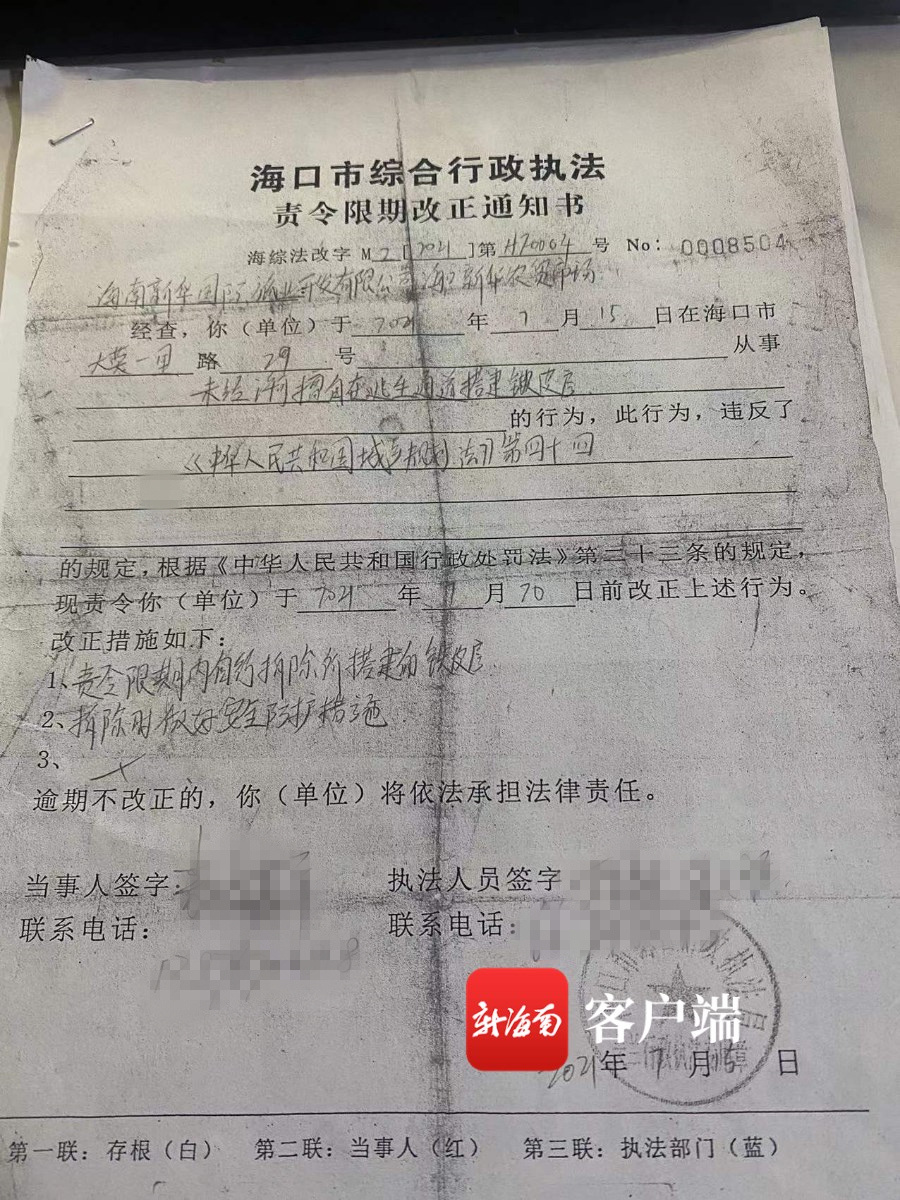 海口市综合行政执法
责令限期改正通知书
海综法改字 M2[2021]第H70004号 No: 0008504
海南新华国际 有限公司海口新华农贸市场
经查，你（单位）于2021年7月15日在海口市
大英一里路29号从事
未经许可擅自在逃生通道搭建铁皮房
的行为，此行为，违反了
《中华人民共和国城乡规划法》第四十四
的规定，根据《中华人民共和国行政处罚法》第二十三条的规定，
现责令你（单位）于2021年7月20日前改正上述行为。
改正措施如下：
1、责令限期内自行拆除所搭建的铁皮房
2、拆除时做好安全防护措施
3、
逾期不改正的，你（单位）将依法承担法律责任。
当事人签字： 执法人员签字
联系电话： 联系电话：
新海南 客户端
2021年7月15日
第一联：存根（白） 第二联：当事人（红） 第三联：执法部门（蓝）